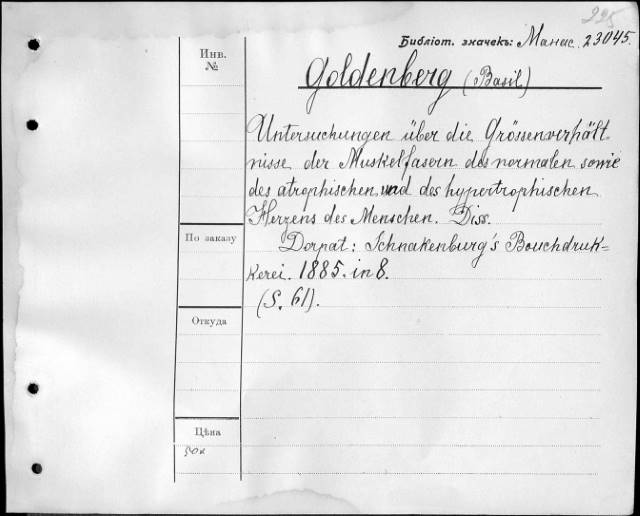 225
Библіот. значекъ: Манас. 23045.
Инв.
№
Goldenberg (Basil.)
Untersuchungen über die Grössenverhält
nisse der Muskelfasern des normalen sowie
des atrophischen und des hypertrophischen
Herzens des Menschen. Diss.
По заказу
Dorpat: Schnakenburg's Bouchdruk-
kerei. 1885. in 8.
(S. 61).
Откуда
Цѣна
50к